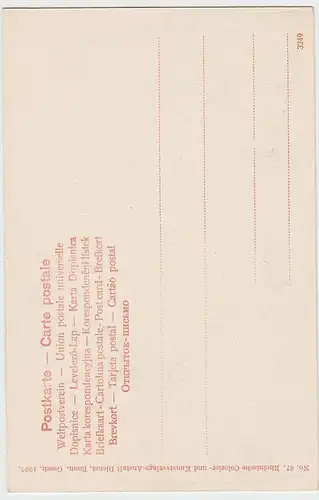 Postkarte — Carte postale
Weltpostverein — Union postale universelle
Dopisnice — Levelező-Lap — Karta Dopisnica
Karta korespondencyjna — Korespondenční lístek
Briefkaart - Cartolina postale - Post card - Brefkort
Brevkort — Tarjeta postal — Cartão postal
Открытое письмо
3249
No. 87. Rheinische Colorier- und Kunstverlags-Anstalt Dienst, Bonn. Gesch. 1905.